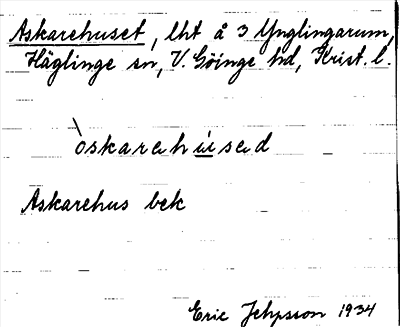 Askarehuset, lht å 3 Ynglingarum,
Häglinge sn, V. Göinge hd, Krist. l.
òskarahúsad
Askarehus bek
Eric Jepsson 1934